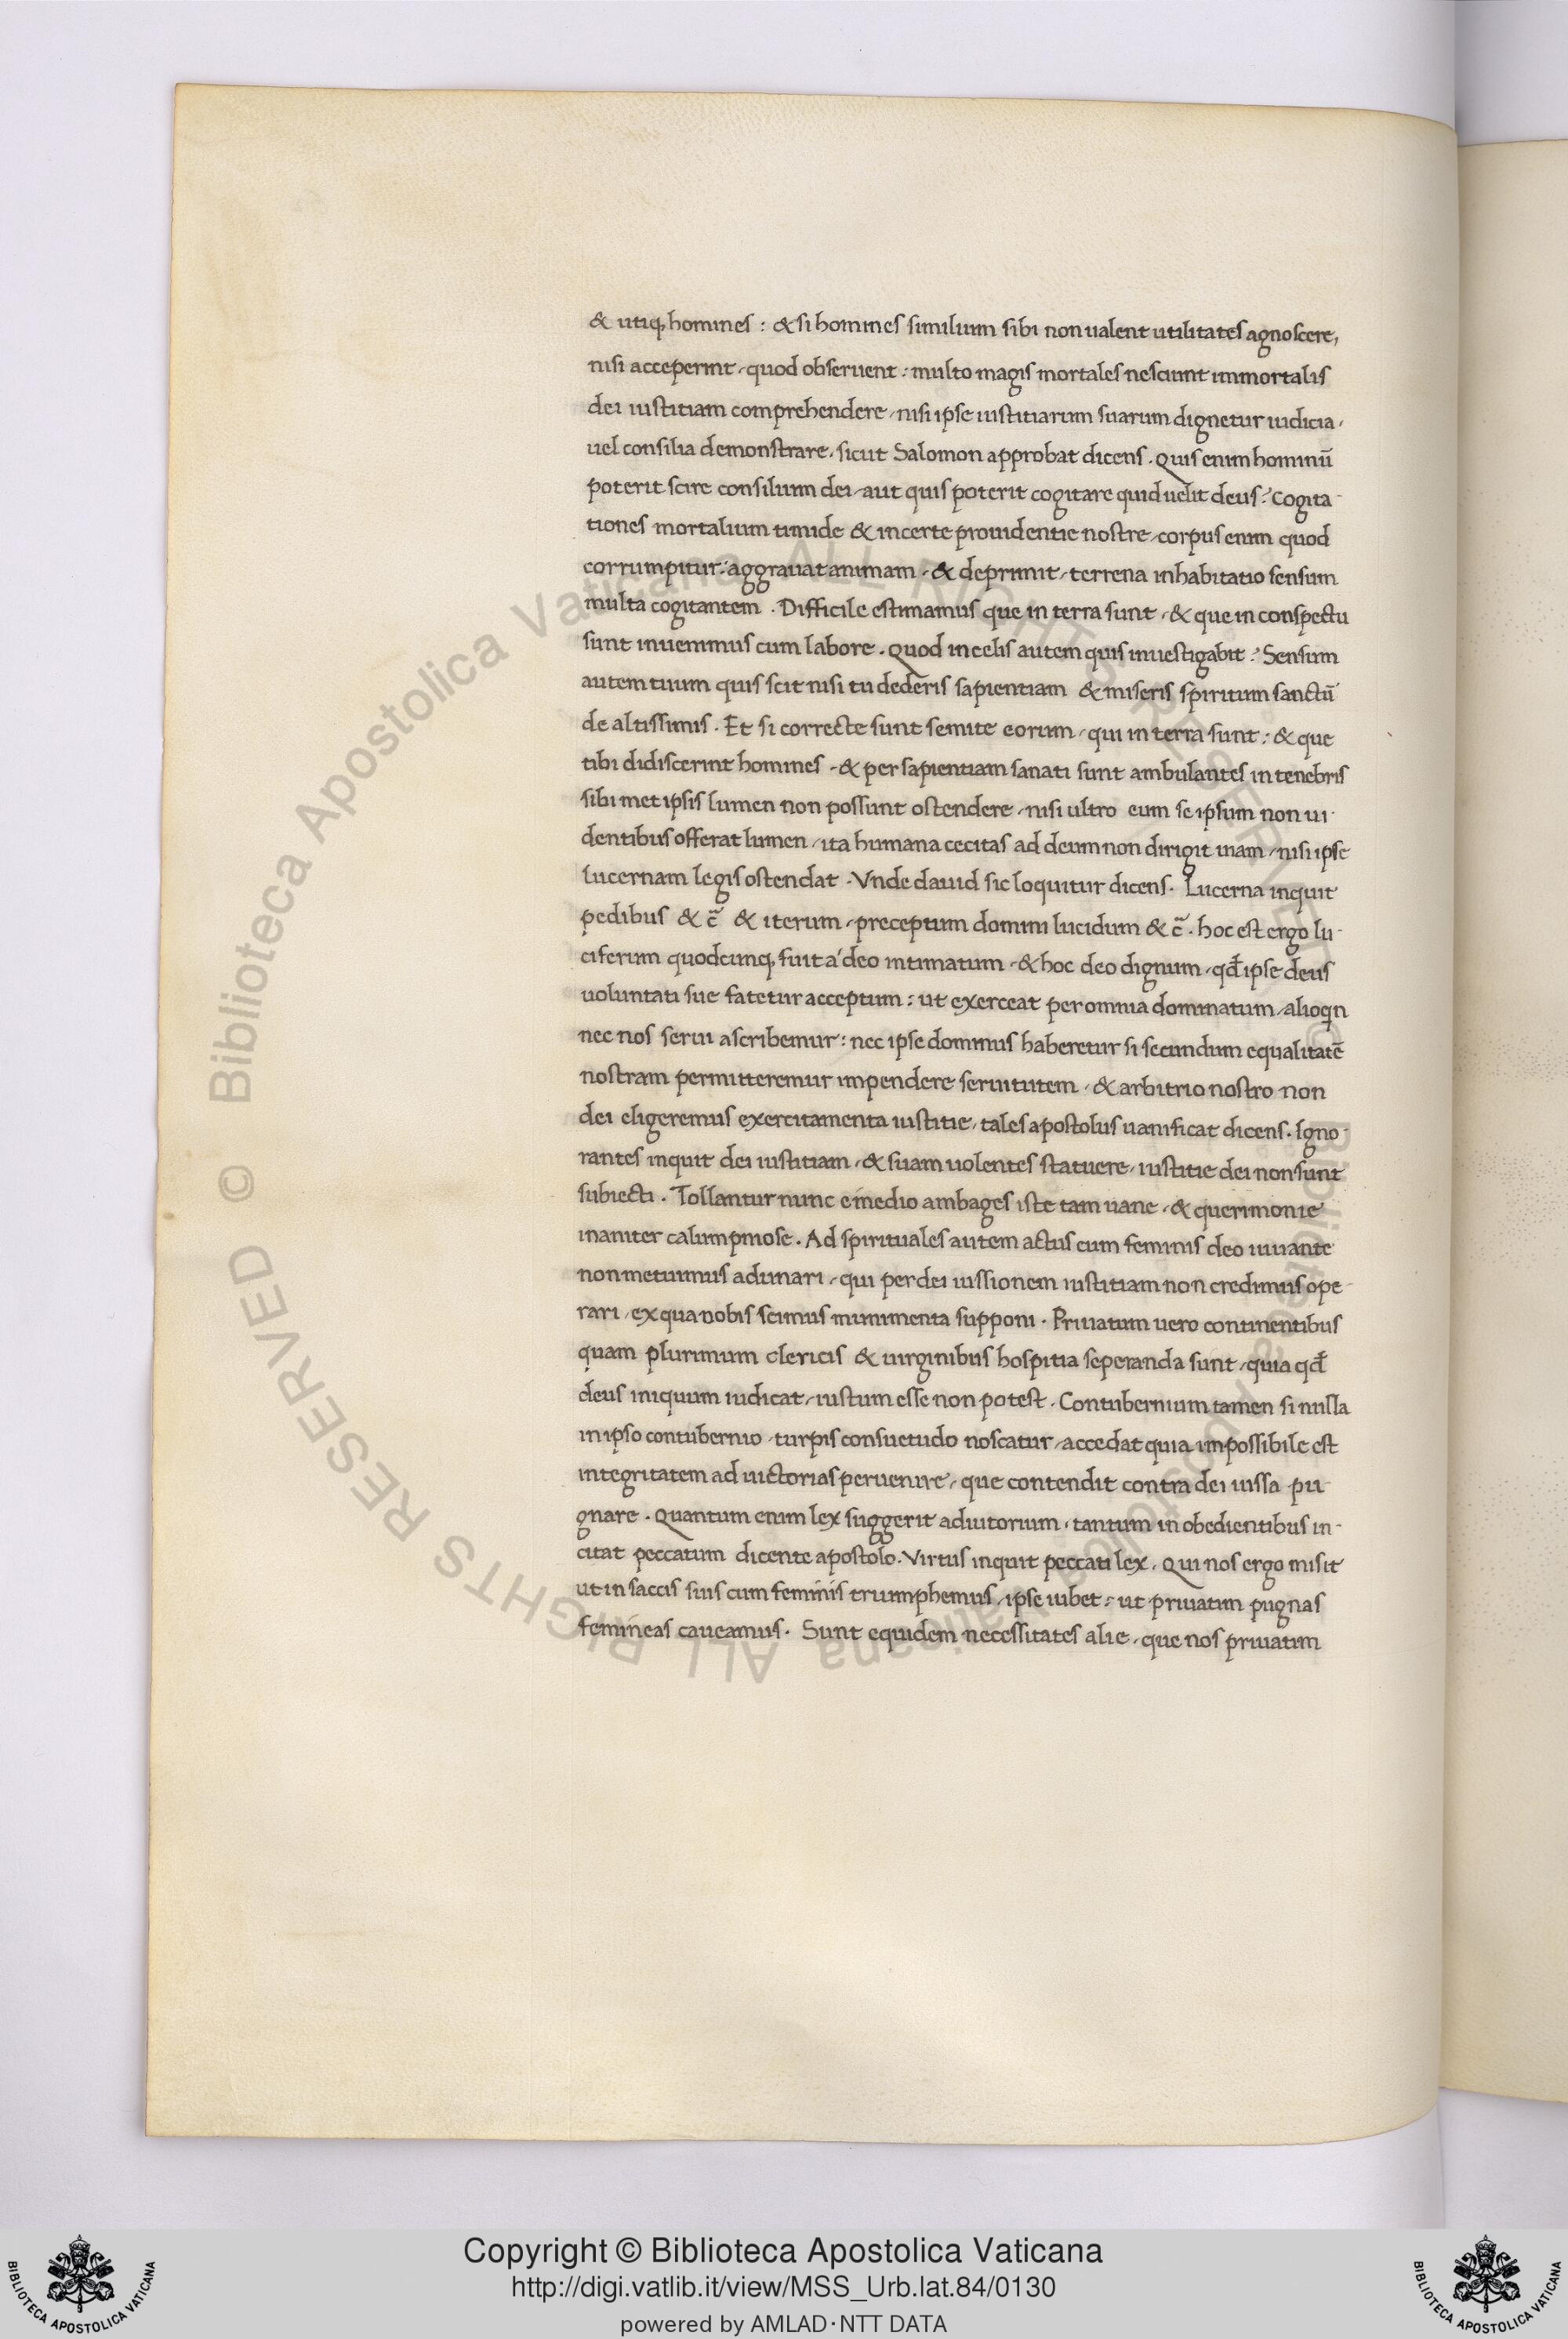 & utiq, homines : & si homines similium sibi non ualent utilitates agnoscere,
nisi acceperint, quod obseruent : multo magis mortales nesciunt immortalis
dei iustitiam comprehendere, nisi ipse iustitiarum suarum dignetur iudicia,
uel consilia demonstrare, sicut Salomon approbat dicens. Quis enim hominū
poterit scire consilium dei, aut quis poterit cogitare quid uelit deus? Cogita-
tiones mortalium timide & incerte prouidentie nostre, corpus enim quod
corrumpitur: aggrauat animam, & deprimit, terrena inhabitatio sensum
multa cogitantem. Difficile estimamus que in terra sunt, & que in conspectu
sunt inuenimus cum labore. Quod in celis autem quis inuestigabit? Sensum
autem tuum quis scit nisi tu dederis sapientiam & miseris spiritum sanctū
de altissimis. Et si correcte sunt semite eorum, qui in terra sunt : & que
tibi didiscerint homines, & per sapientiam sanati sunt ambulantes in tenebris
sibi met ipsis lumen non possunt ostendere, nisi ultro eum se ipsum non ui-
dentibus offerat lumen, ita humana cecitas ad deum non dirigit uiam, nisi ipse
lucernam legis ostendat. Vnde dauid sic loquitur dicens. Lucerna inquit
pedibus & c̄ & iterum, preceptum domini lucidum & c̄. hoc est ergo lu-
ciferum quodcunq, fuit a deo intimatum, & hoc deo dignum, qđ ipse deus
uoluntati sue fatetur acceptum : ut exerceat per omnia dominatum, alioqn
nec nos serui ascribemur : nec ipse dominus haberetur si secundum equalitatē
nostram permitteremur impendere seruitutem, & arbitrio nostro non
dei eligeremus exercitamenta iustitie, tales apostolus uanificat dicens. Igno-
rantes inquit dei iustitiam, & suam uolentes statuere, iustitie dei non sunt
subiecti. Tollantur nunc e medio ambages iste tam uane, & querimonie
inaniter calumpniose. Ad spirituales autem actus cum feminis deo iuuante
non metuimus adunari, qui per dei iussionem iustitiam non credimus ope-
rari, ex qua nobis scimus munimenta supponi. Priuatum uero continentibus
quam plurimum clericis & uirginibus hospitia seperanda sunt, quia qđ
deus iniquum iudicat, iustum esse non potest. Contubernium tamen si nulla
in ipso contubernio, turpis consuetudo noscatur, accedat quia impossibile est
integritatem ad uictorias peruenire, que contendit contra dei iussa pu-
gnare. Quantum enim lex suggerit adiutorium, tantum in obedientibus in-
citat peccatum dicente apostolo. Virtus inquit peccati lex. Qui nos ergo misit
ut in saccis suis cum feminis triumphemus, ipse iubet : ut priuatim pugnas
femineas caueamus. Sunt equidem necessitates alie, que nos priuatim
© Biblioteca Apostolica Vaticana ALL RIGHTS RESERVED © Biblioteca Apostolica Vaticana ALL RIGHTS RESERVED
Copyright © Biblioteca Apostolica Vaticana
http://digi.vatlib.it/view/MSS_Urb.lat.84/0130
powered by AMLAD·NTT DATA
BIBLIOTECA APOSTOLICA VATICANA
BIBLIOTECA APOSTOLICA VATICANA